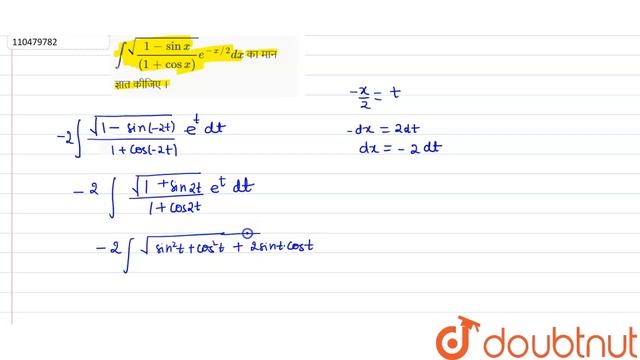 110479782
∫ √((1 − sin x)/(1 + cos x)) e^(−x/2) dx का मान
ज्ञात कीजिए।
-x/2 = t
-dx = 2dt
dx = -2 dt
-2 ∫ √(1 - sin(-2t)) / (1 + cos(-2t)) e^t dt
-2 ∫ √(1 + sin2t) / (1 + cos2t) e^t dt
-2 ∫ √(sin²t + cos²t + 2sint.cost
doubtnut